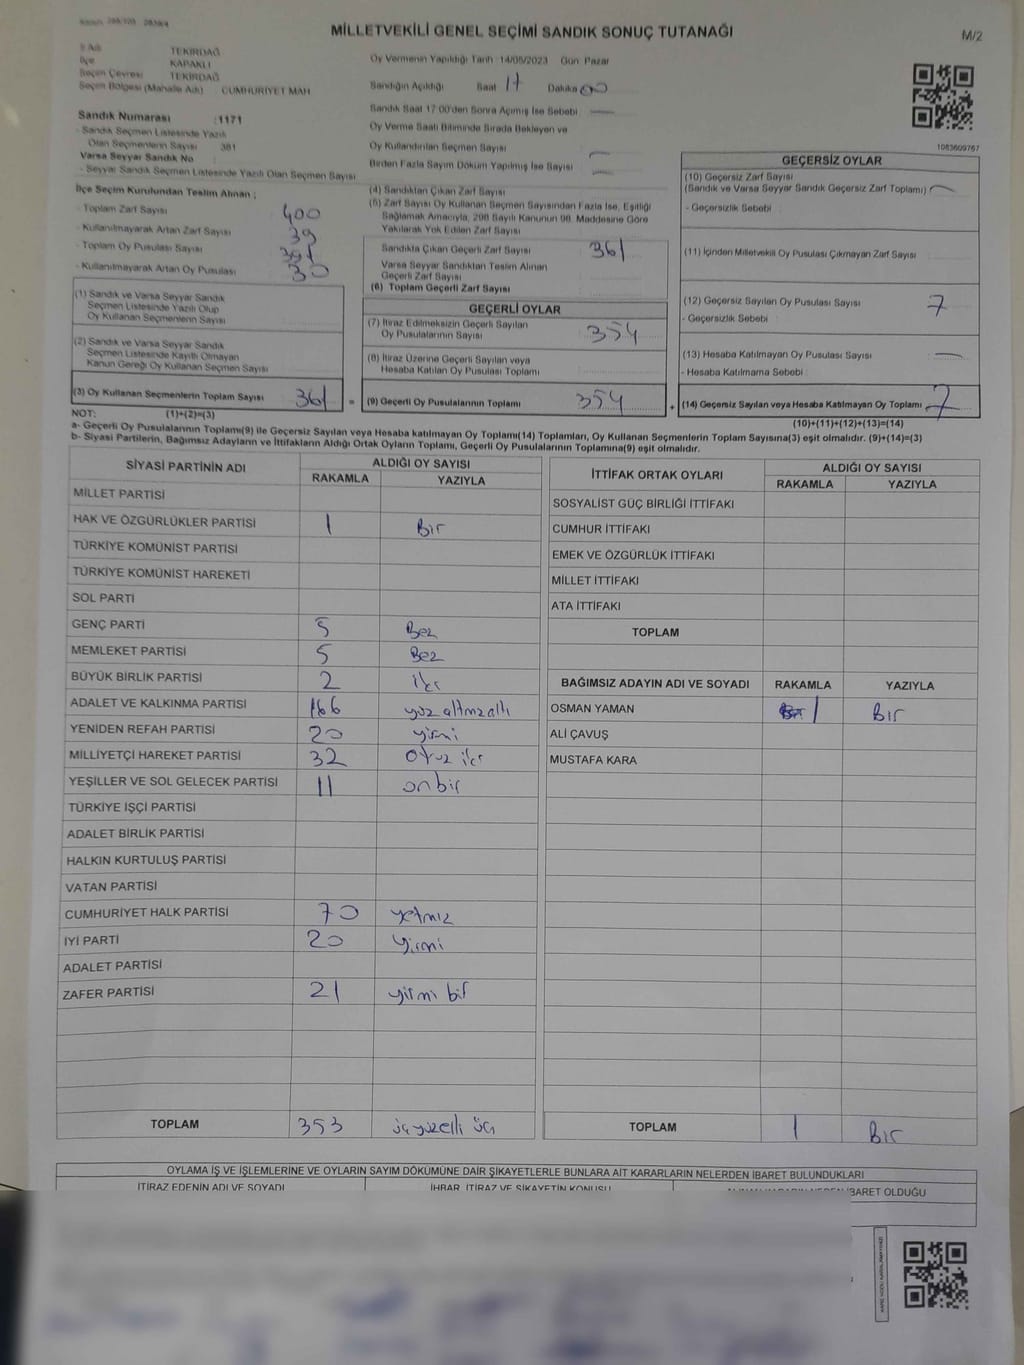 MİLLETVEKİLİ GENEL SEÇİMİ SANDIK SONUÇ TUTANAĞI
M/2
İl Adı TEKİRDAĞ
İlçe KAPAKLI
Seçim Çevresi TEKİRDAĞ
Seçim Bölgesi (Mahalle Adı) CUMHURİYET MAH
Oy Vermenin Yapıldığı Tarih 14/05/2023 Gün Pazar
Sandığın Açıldığı Saat 17 Dakika 00
Sandık Saat 17.00'den Sonra Açılmış İse Sebebi
Oy Verme Saati Bitiminde Sırada Bekleyen ve
Oy Kullandırılan Seçmen Sayısı
Birden Fazla Sayım Döküm Yapılmış İse Sayısı
1083609767
Sandık Numarası : 1171
- Sandık Seçmen Listesinde Yazılı
Olan Seçmenlerin Sayısı 381
Varsa Seyyar Sandık No
- Seyyar Sandık Seçmen Listesinde Yazılı Olan Seçmen Sayısı
İlçe Seçim Kurulundan Teslim Alınan ;
- Toplam Zarf Sayısı 400
- Kullanılmayarak Artan Zarf Sayısı 39
- Toplam Oy Pusulası Sayısı
- Kullanılmayarak Artan Oy Pusulası 30
(1) Sandık ve Varsa Seyyar Sandık
Seçmen Listesinde Yazılı Olup
Oy Kullanan Seçmenlerin Sayısı
(2) Sandık ve Varsa Seyyar Sandık
Seçmen Listesinde Kayıtlı Olmayan
Kanun Gereği Oy Kullanan Seçmen Sayısı
(3) Oy Kullanan Seçmenlerin Toplam Sayısı 361 =
(4) Sandıktan Çıkan Zarf Sayısı
(5) Zarf Sayısı Oy Kullanan Seçmen Sayısından Fazla İse, Eşitliği
Sağlamak Amacıyla, 298 Sayılı Kanunun 98. Maddesine Göre
Yakılarak Yok Edilen Zarf Sayısı
Sandıkta Çıkan Geçerli Zarf Sayısı 361
Varsa Seyyar Sandıktan Teslim Alınan
Geçerli Zarf Sayısı
(6) Toplam Geçerli Zarf Sayısı
GEÇERLİ OYLAR
(7) İtiraz Edilmeksizin Geçerli Sayılan
Oy Pusulalarının Sayısı 354
(8) İtiraz Üzerine Geçerli Sayılan veya
Hesaba Katılan Oy Pusulası Toplamı
(9) Geçerli Oy Pusulalarının Toplamı 354 +
GEÇERSİZ OYLAR
(10) Geçersiz Zarf Sayısı
(Sandık ve Varsa Seyyar Sandık Geçersiz Zarf Toplamı)
- Geçersizlik Sebebi
(11) İçinden Milletvekili Oy Pusulası Çıkmayan Zarf Sayısı
(12) Geçersiz Sayılan Oy Pusulası Sayısı 7
- Geçersizlik Sebebi
(13) Hesaba Katılmayan Oy Pusulası Sayısı —
- Hesaba Katılmama Sebebi
(14) Geçersiz Sayılan veya Hesaba Katılmayan Oy Toplamı 7
NOT: (1)+(2)=(3)
(10)+(11)+(12)+(13)=(14)
a- Geçerli Oy Pusulalarının Toplamı(9) ile Geçersiz Sayılan veya Hesaba katılmayan Oy Toplamı(14) Toplamları, Oy Kullanan Seçmenlerin Toplam Sayısına(3) eşit olmalıdır. (9)+(14)=(3)
b- Siyasi Partilerin, Bağımsız Adayların ve İttifakların Aldığı Ortak Oyların Toplamı, Geçerli Oy Pusulalarının Toplamına(9) eşit olmalıdır.
SİYASİ PARTİNİN ADI
ALDIĞI OY SAYISI
RAKAMLA YAZIYLA
MİLLET PARTİSİ
HAK VE ÖZGÜRLÜKLER PARTİSİ 1 Bir
TÜRKİYE KOMÜNİST PARTİSİ
TÜRKİYE KOMÜNİST HAREKETİ
SOL PARTİ
GENÇ PARTİ 5 Beş
MEMLEKET PARTİSİ 5 Beş
BÜYÜK BİRLİK PARTİSİ 2 iki
ADALET VE KALKINMA PARTİSİ 166 yüz altmışaltı
YENİDEN REFAH PARTİSİ 20 yirmi
MİLLİYETÇİ HAREKET PARTİSİ 32 otuz iki
YEŞİLLER VE SOL GELECEK PARTİSİ 11 onbir
TÜRKİYE İŞÇİ PARTİSİ
ADALET BİRLİK PARTİSİ
HALKIN KURTULUŞ PARTİSİ
VATAN PARTİSİ
CUMHURİYET HALK PARTİSİ 70 yetmiş
İYİ PARTİ 20 yirmi
ADALET PARTİSİ
ZAFER PARTİSİ 21 yirmi bir
TOPLAM 353 üçyüzelli üç
İTTİFAK ORTAK OYLARI
ALDIĞI OY SAYISI
RAKAMLA YAZIYLA
SOSYALİST GÜÇ BİRLİĞİ İTTİFAKI
CUMHUR İTTİFAKI
EMEK VE ÖZGÜRLÜK İTTİFAKI
MİLLET İTTİFAKI
ATA İTTİFAKI
TOPLAM
BAĞIMSIZ ADAYIN ADI VE SOYADI RAKAMLA YAZIYLA
OSMAN YAMAN 1 Bir
ALİ ÇAVUŞ
MUSTAFA KARA
TOPLAM 1 Bir
OYLAMA İŞ VE İŞLEMLERİNE VE OYLARIN SAYIM DÖKÜMÜNE DAİR ŞİKAYETLERLE BUNLARA AİT KARARLARIN NELERDEN İBARET BULUNDUKLARI
İTİRAZ EDENİN ADI VE SOYADI İHBAR, İTİRAZ VE ŞİKAYETİN KONUSU İBARET OLDUĞU